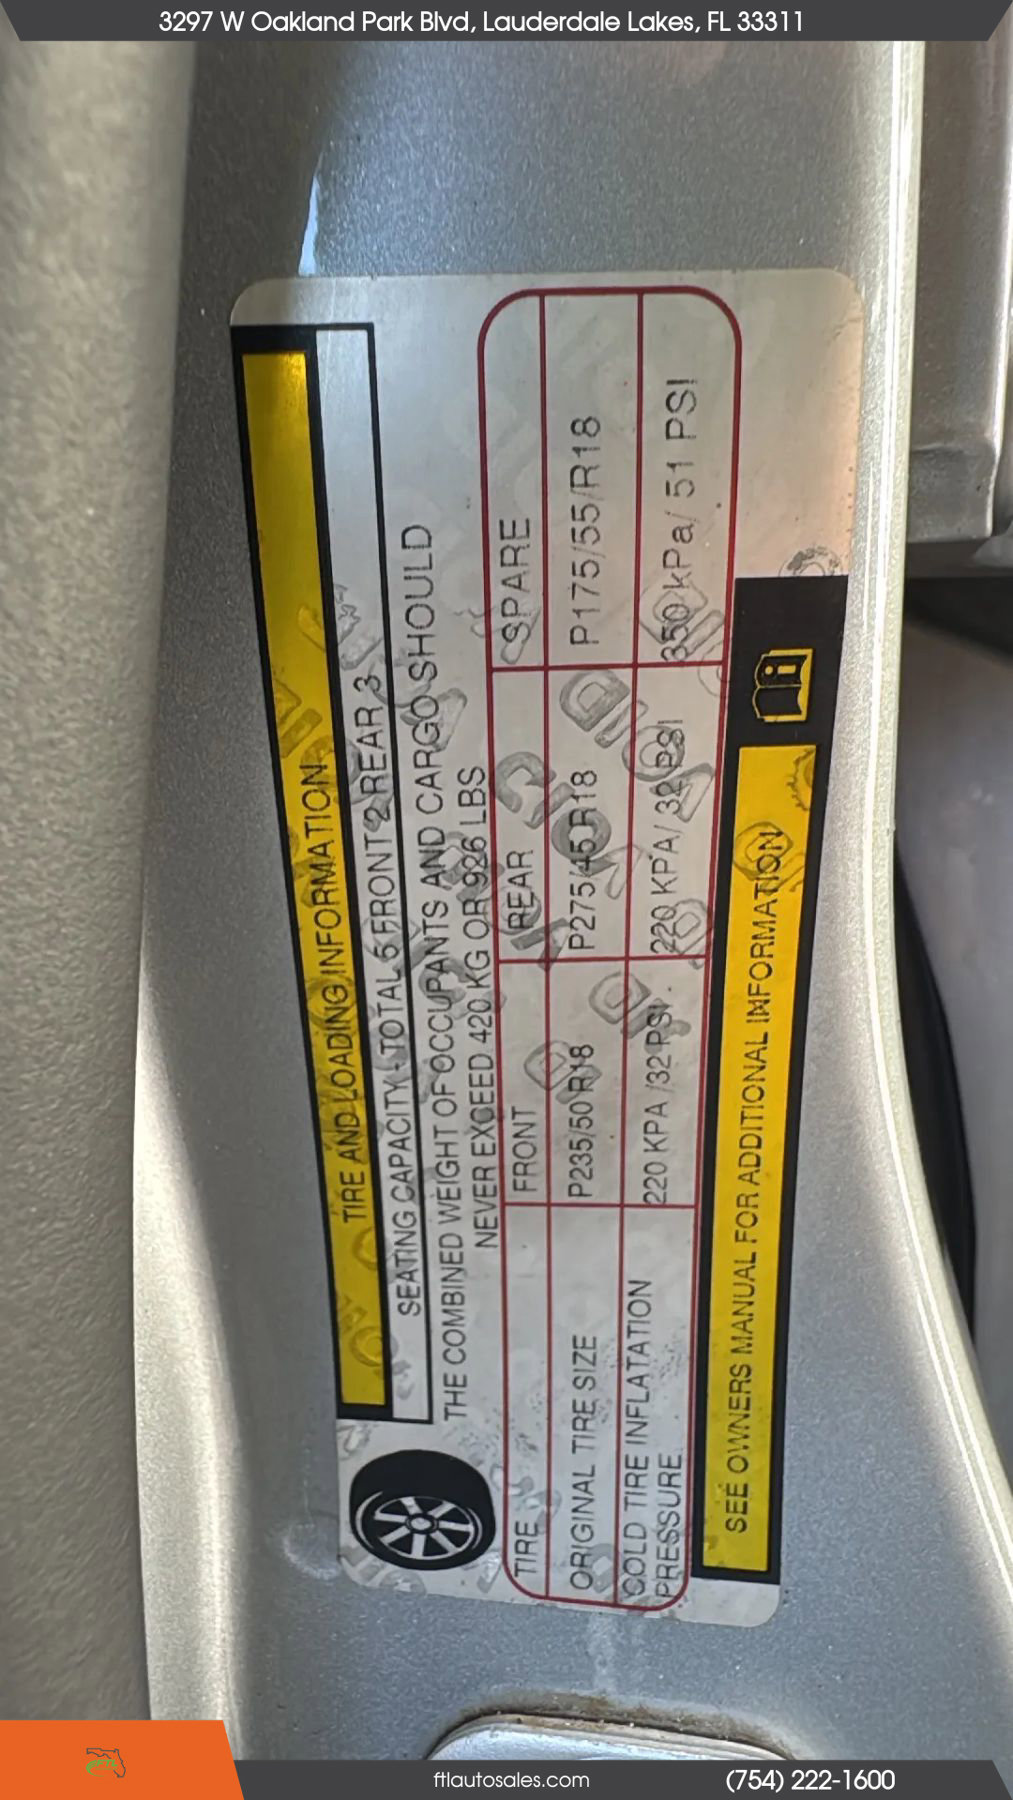 3297 W Oakland Park Blvd, Lauderdale Lakes, FL 33311
TIRE AND LOADING INFORMATION
SEATING CAPACITY - TOTAL 5 FRONT 2 REAR 3
THE COMBINED WEIGHT OF OCCUPANTS AND CARGO SHOULD
NEVER EXCEED 420 KG OR 926 LBS
TIRE FRONT REAR SPARE
ORIGINAL TIRE SIZE P235/50R18 P275/45R18 P175/55/R18
COLD TIRE INFLATATION
PRESSURE 220 KPA /32 PSI 220 KPA/ 32 PSI 350 kPa/ 51 PSI
SEE OWNERS MANUAL FOR ADDITIONAL INFORMATION
ftlautosales.com
(754) 222-1600